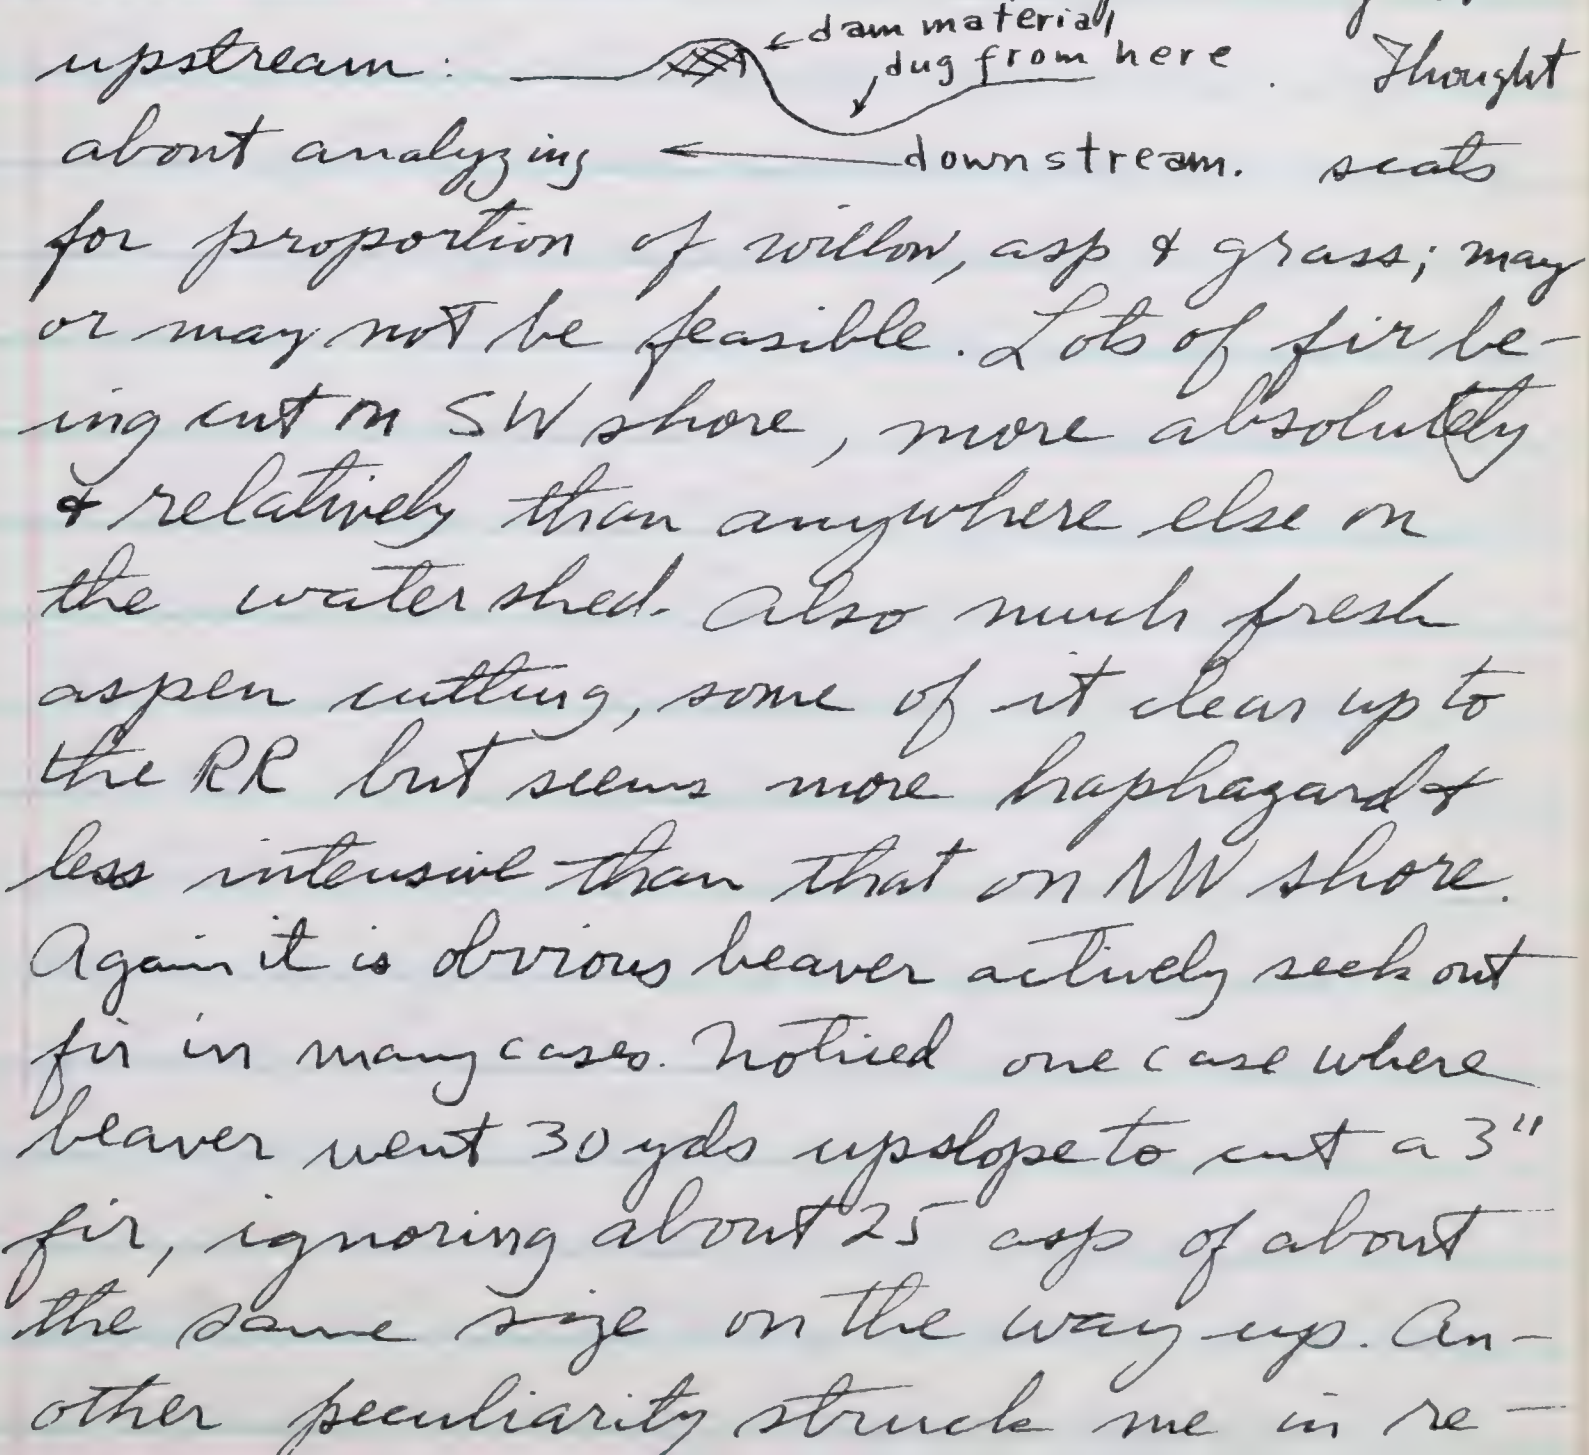 upstream: ←dam material
dug from here. Thought
about analyzing ← downstream. scats
for proportion of willow, asp & grass; may
or may not be feasible. Lots of fir be-
ing cut on SW shore, more absolutely
& relatively than anywhere else on
the watershed. Also much fresh
aspen cutting, some of it clear up to
the RR but seems more haphazard &
less intensive than that on NW shore.
Again it is obvious beaver actively seek out
fir in many cases. Noticed one case where
beaver went 30 yds upslope to cut a 3"
fir, ignoring about 25 asp of about
the same size on the way up. An-
other peculiarity struck me in re-